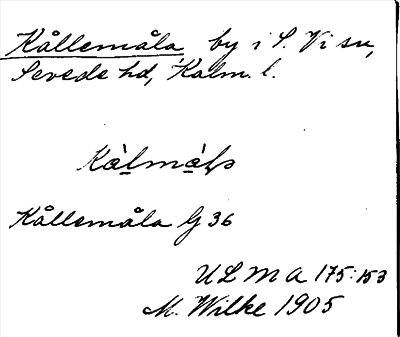 Kållemåla by i S. Vi sn,
Sevede hd, Kalm. l.
Kållemåla G 36
ULMA 175:153
M. Wilke 1905